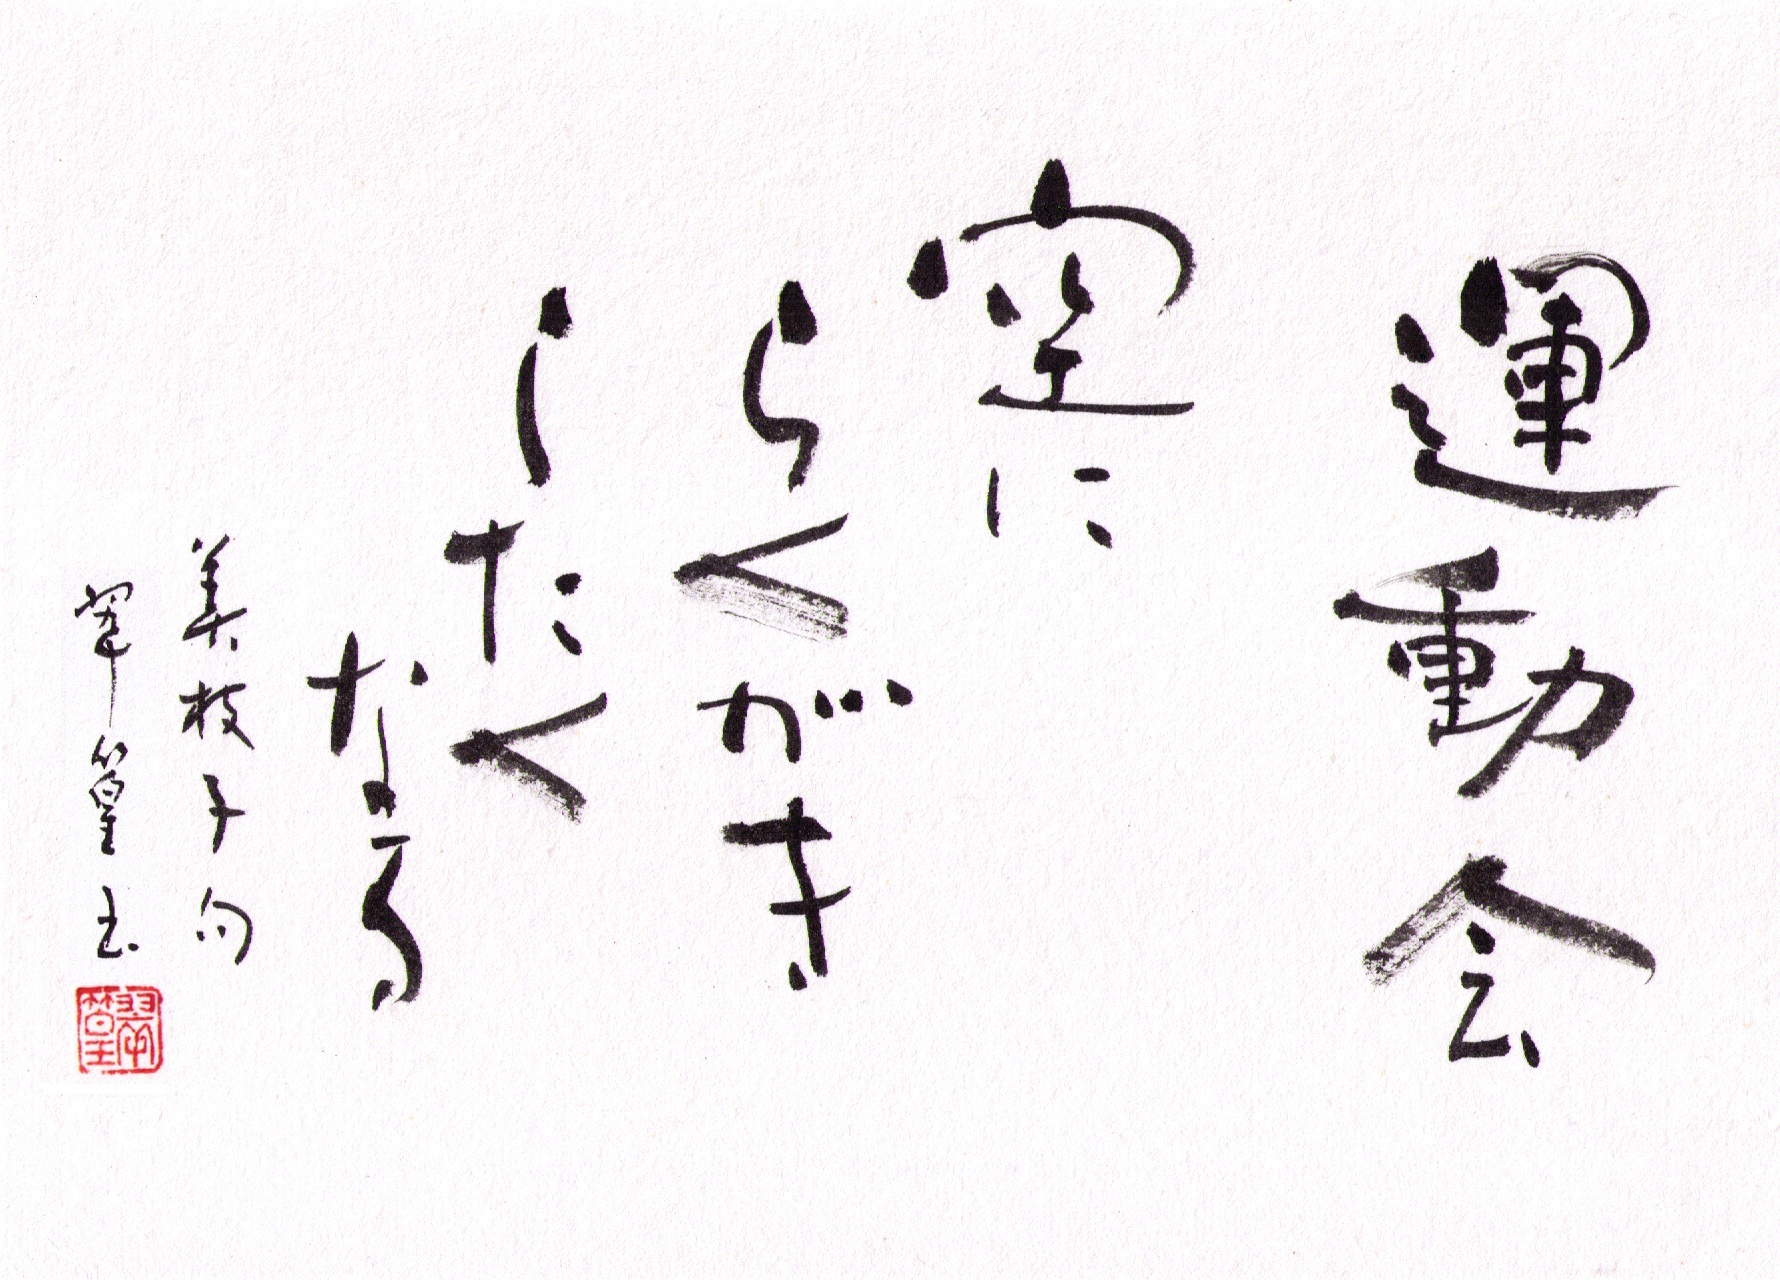 運動会
空に
らくがき
したく
なる
美枝子句
翠篁書
翠篁